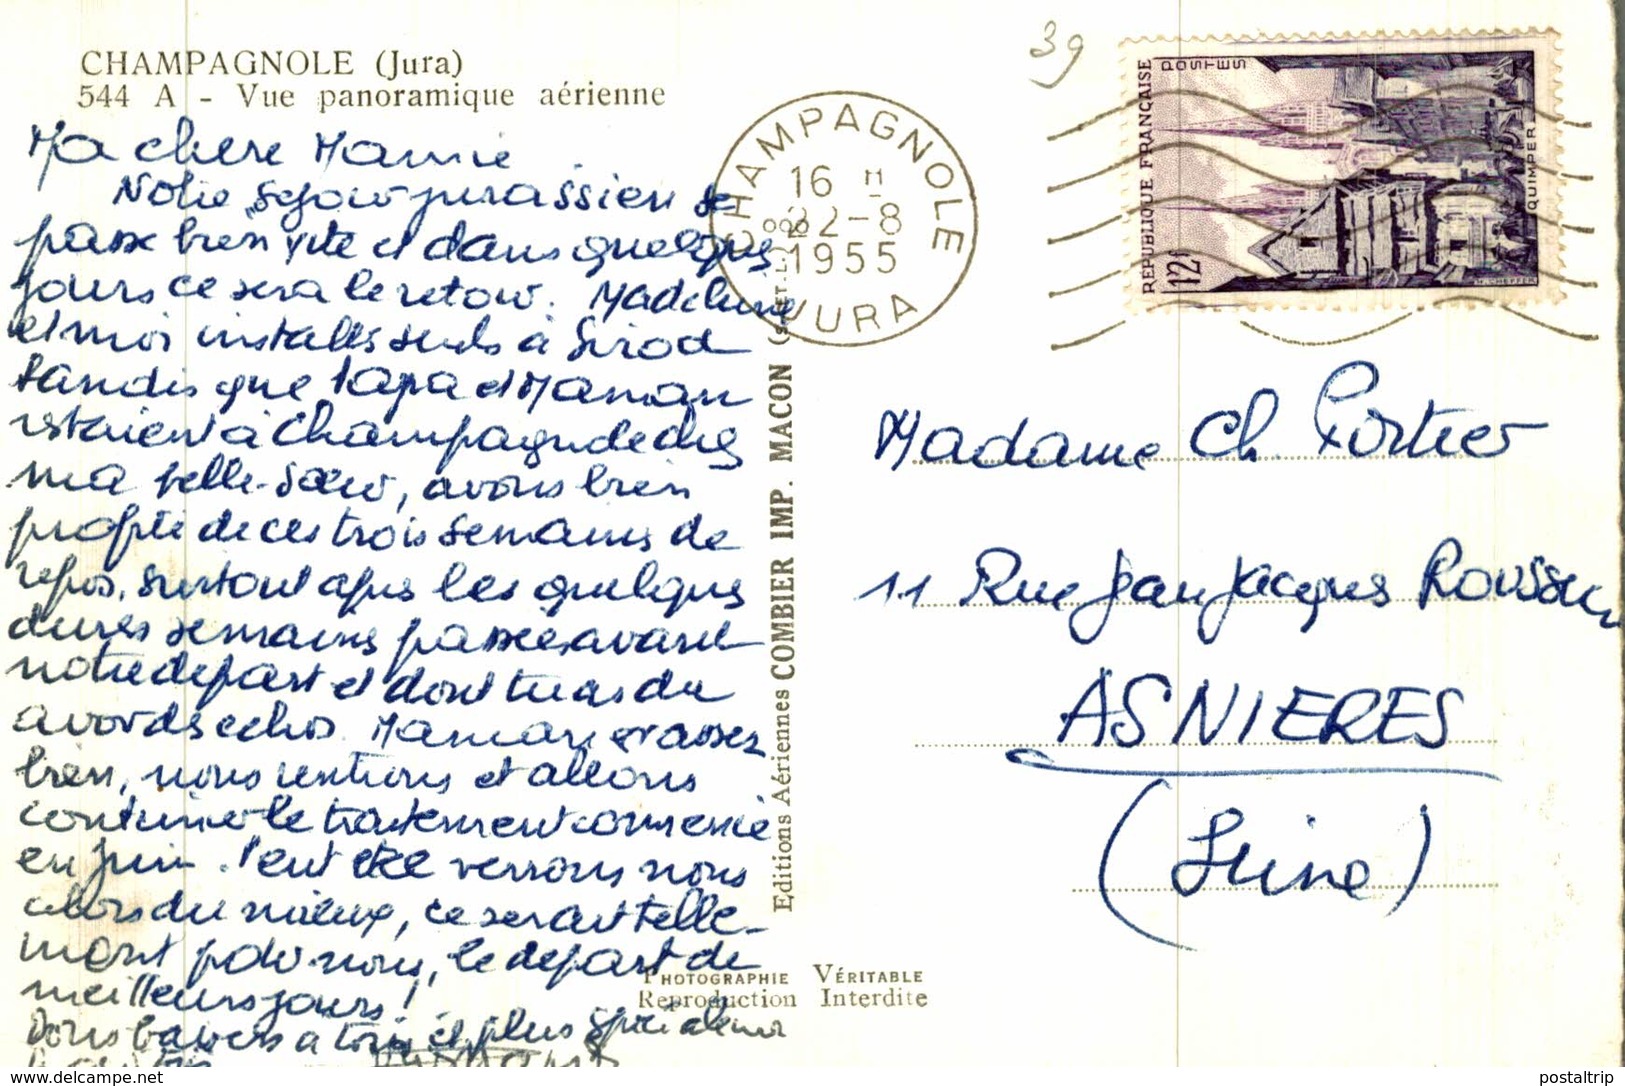 CHAMPAGNOLE (Jura)
544 A - Vue panoramique aérienne
Ma chère Mamie
Notre séjour jurassien se
passe bien vite et dans quelques
jours ce sera le retour. Madeleine
et moi installés seuls à Sirod
tandis que Papa et Maman
restaient à Champagnole chez
ma belle-sœur, avons bien
profité de ces trois semaines de
repos, surtout après les quelques
dures semaines passées avant
notre départ et dont tu as du
avoir des echos. Maman va assez
bien, nous rentrons et allons
continuer le traitement commencé
en juin. Peut etre verrons nous
alors du mieux, ce serait telle-
ment pour nous, le départ de
meilleurs jours!
Bons baisers a tous et plus
39
CHAMPAGNOLE
16 H
22-8
1955
JURA
REPUBLIQUE FRANÇAISE
POSTES
12F
QUIMPER
Editions Aériennes COMBIER IMP. MACON
Madame Ch. Portier
11 Rue Jean Jacques Rousseau
ASNIERES
(Seine)
PHOTOGRAPHIE VÉRITABLE
Reproduction Interdite
https://www.delcampe.net
postaltrip